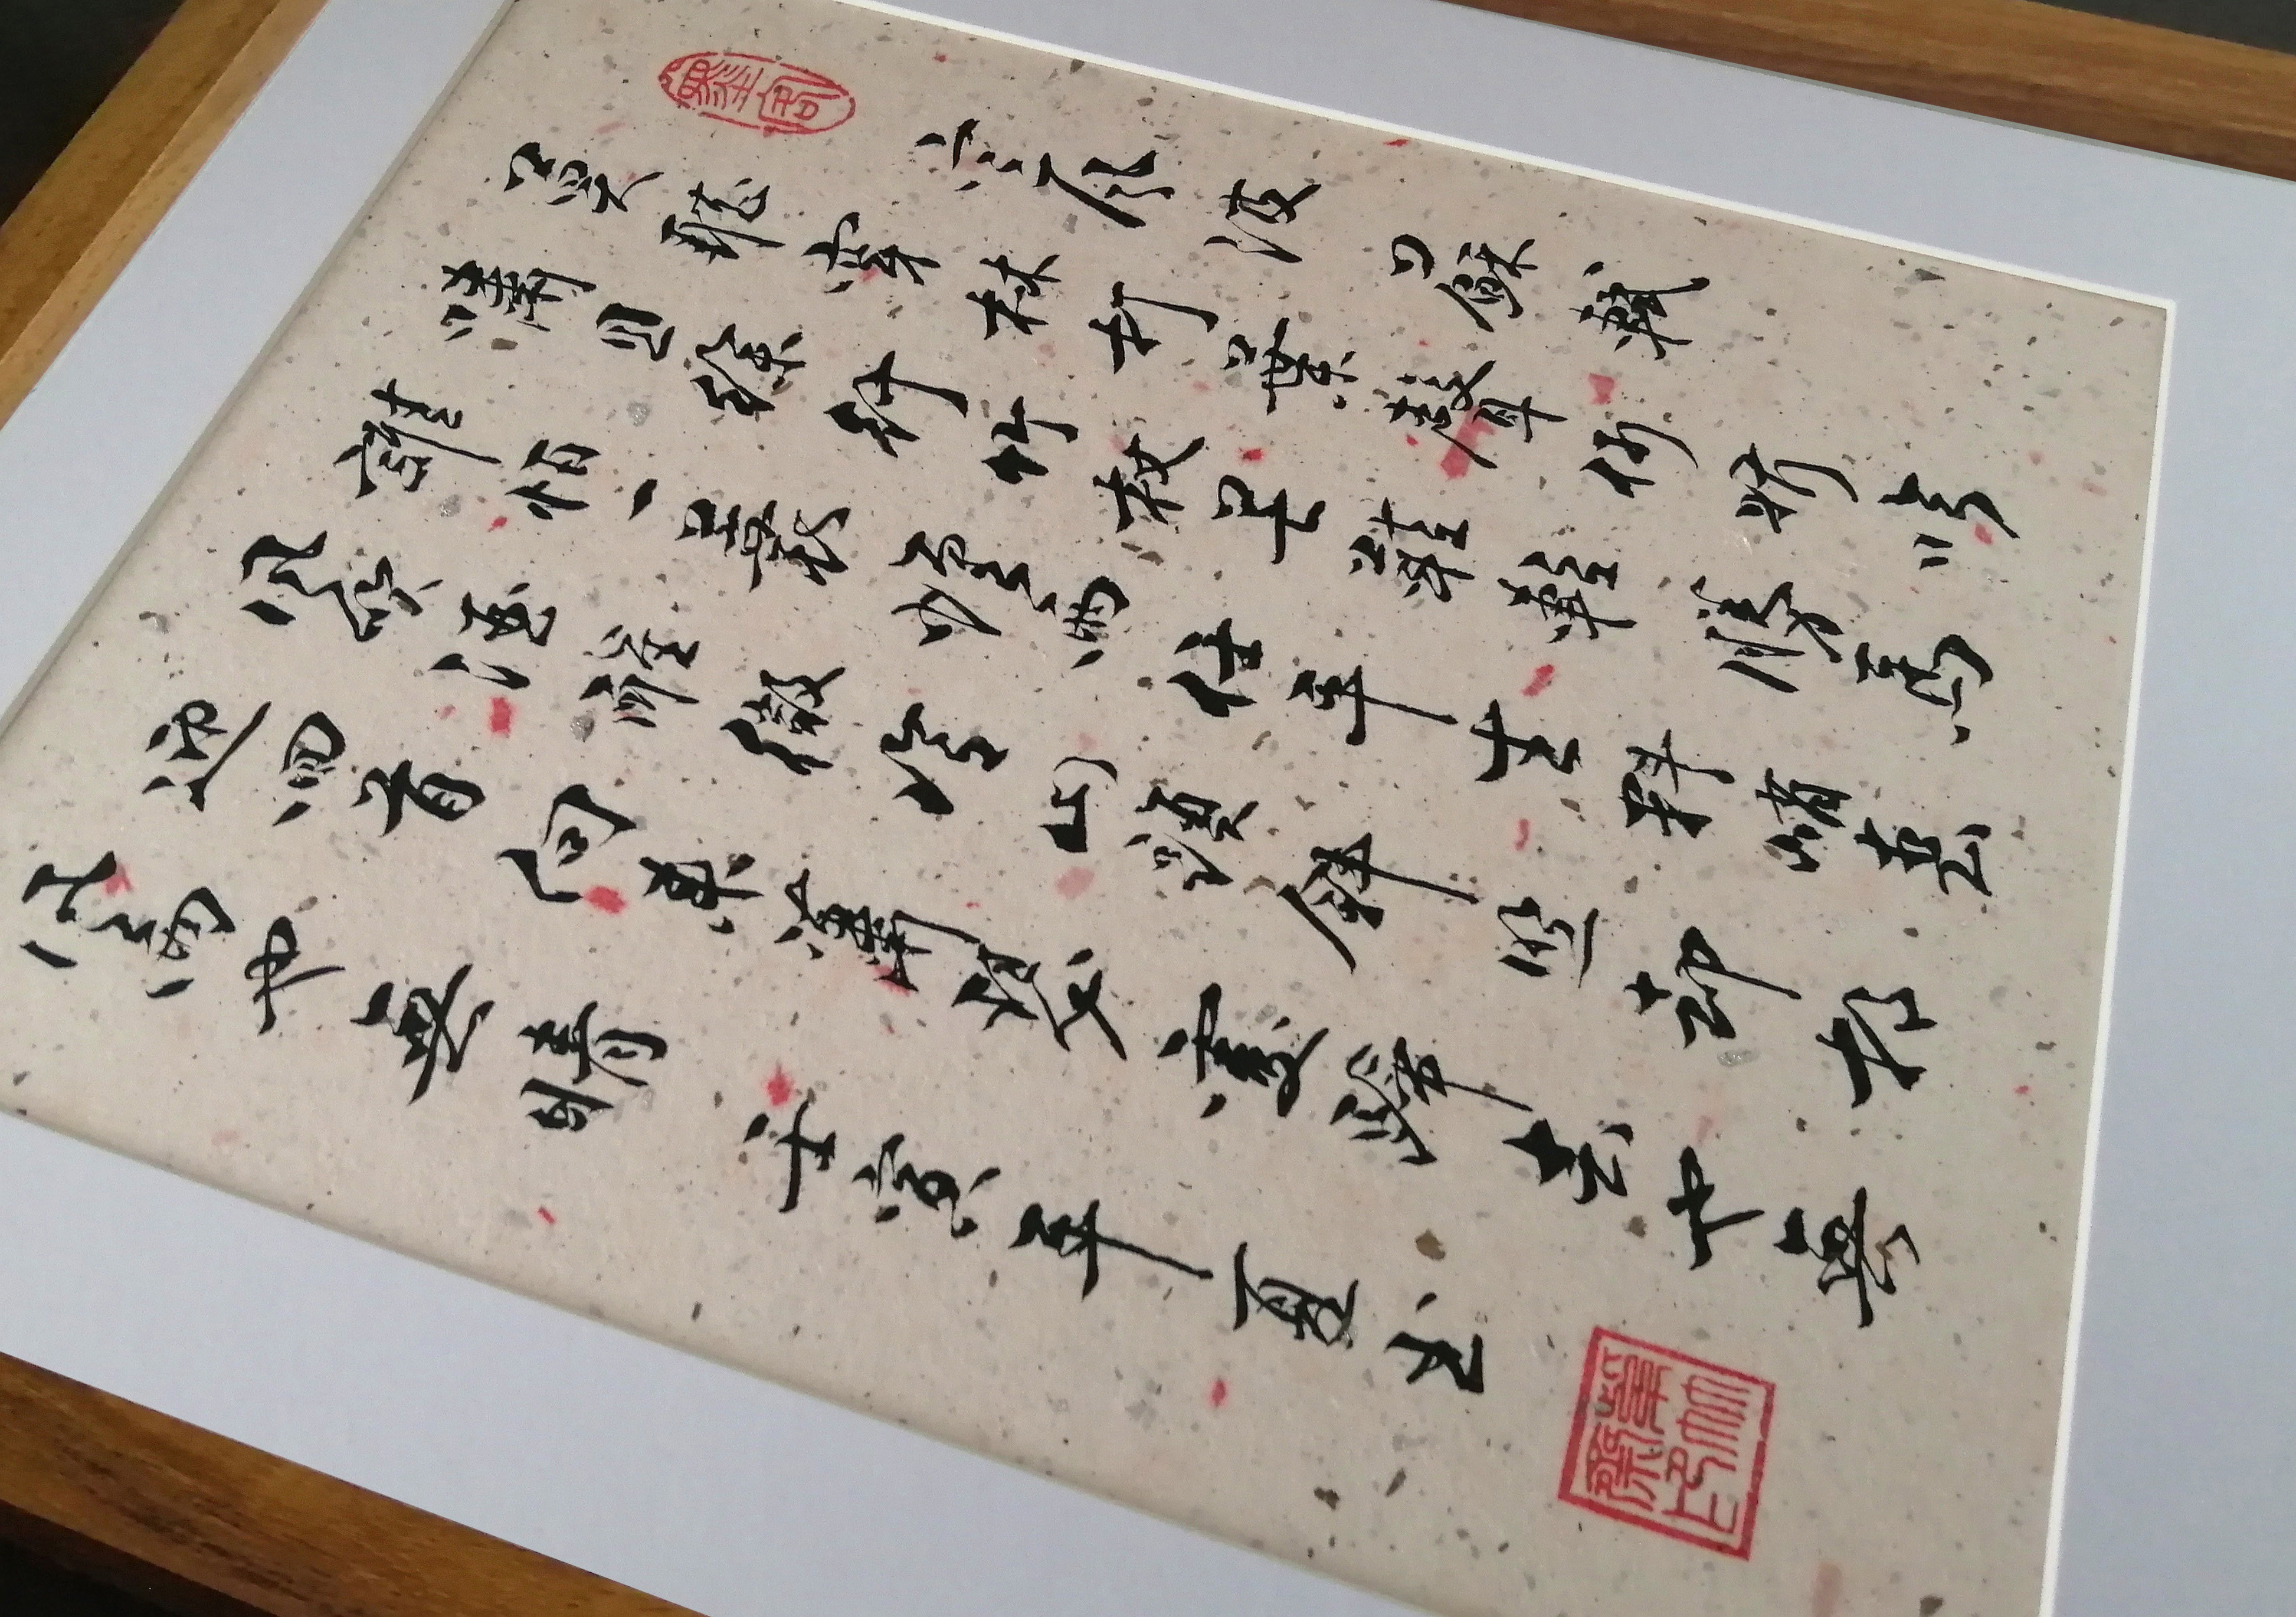 定風波 蘇軾
莫聽穿林打葉聲何妨吟
嘯且徐行竹杖芒鞋輕勝馬
誰怕一蓑煙雨任平生料峭春
風吹酒醒微冷山頭斜照却相
迎回首向來蕭瑟處歸去也無
風雨也無晴 壬寅年夏书